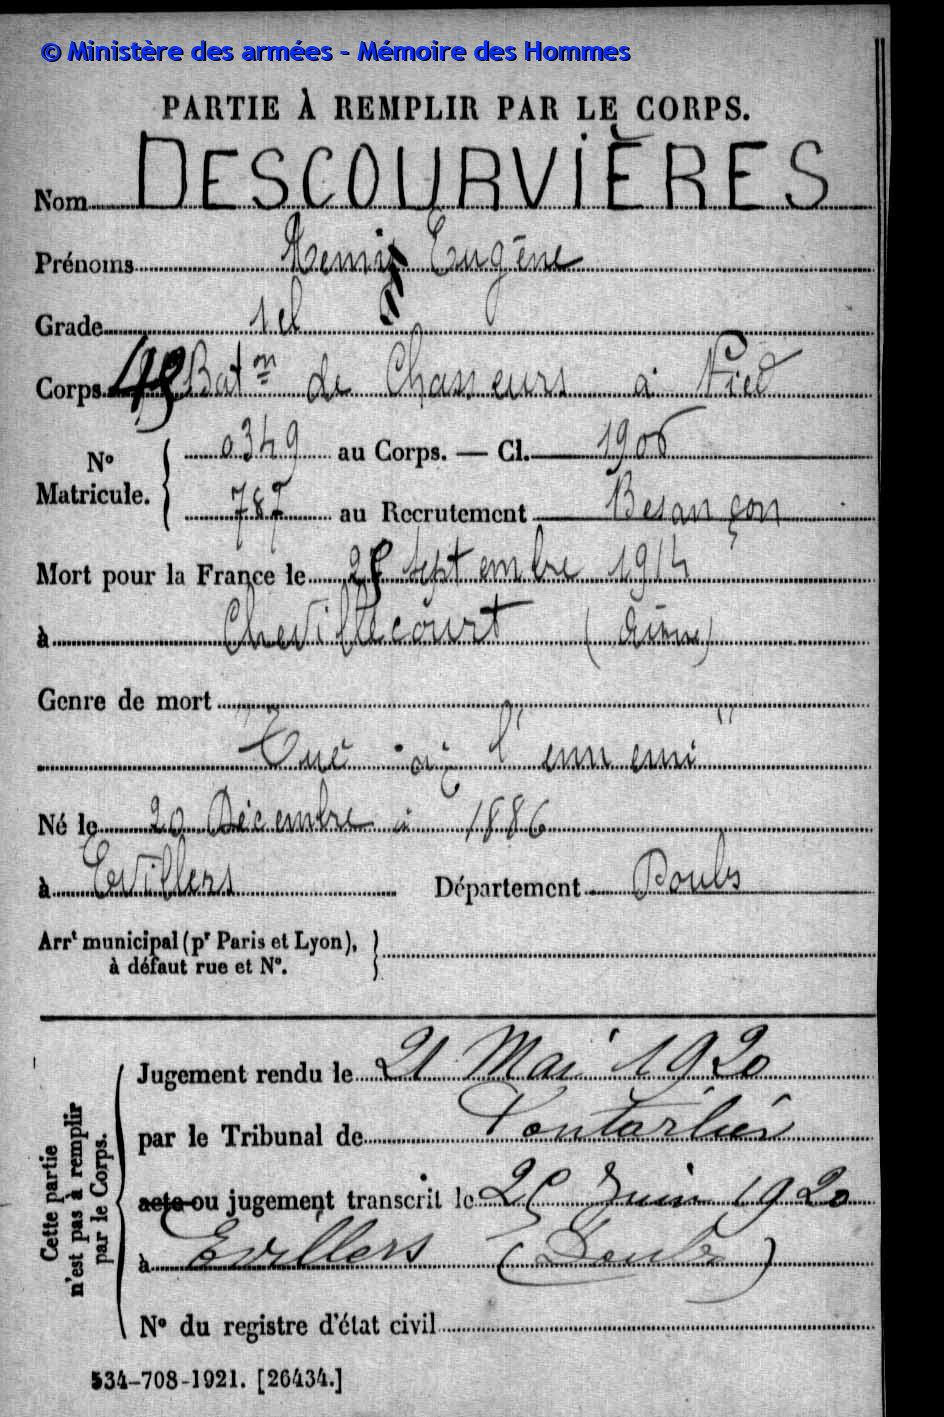 © Ministère des armées - Mémoire des Hommes
PARTIE À REMPLIR PAR LE CORPS.
Nom DESCOURVIÈRES
Prénoms Remy Eugène
Grade 1 cl
Corps Bat.on de Chasseurs à Pied
No Matricule. 0349 au Corps. — Cl. 1906
787 au Recrutement Besançon
Mort pour la France le septembre 1914
à Chevillecourt (Aisne)
Genre de mort
"Tué à l'ennemi"
Né le 20 Décembre à 1886
à Evillers Département Doubs
Arrt municipal (pr Paris et Lyon),
à défaut rue et No.
Cette partie
n'est pas à remplir
par le Corps.
Jugement rendu le 21 Mai 1920
par le Tribunal de Pontarlier
acte ou jugement transcrit le 25 Juin 1920
à Evillers (Doubs)
No du registre d'état civil
534-708-1921. [26434.]